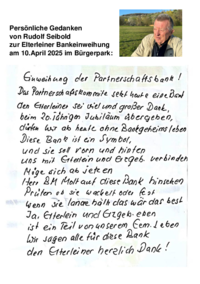 Persönliche Gedanken
von Rudolf Seibold
zur Elterleiner Bankeinweihung
am 10.April 2025 im Bürgerpark:
Einweihung der Partnerschaftsbank!
Das Partnerschaftskomitte setzt heute eine Bank
Den Elterleiner sei viel und großer Dank,
beim 20.jährigen Jubiläum übergeben,
dürfen wir ab heute ohne Bankgeheimnis leben
Diese Bank ist ein Symbol,
und sie soll vorn und hinten
uns mit Elterlein und Erzgeb. verbinden
Möge sich ab jetzt
Herr BM Mall auf diese Bank hinsetzen
Prüfen ob sie wackelt oder fest
wenn sie lange hält das wär das best
Ja, Elterlein und Erzgeb. eben
ist ein Teil von unserem Gem. Leben
Wir sagen alle für diese Bank
den Elterleiner herzlich Dank!